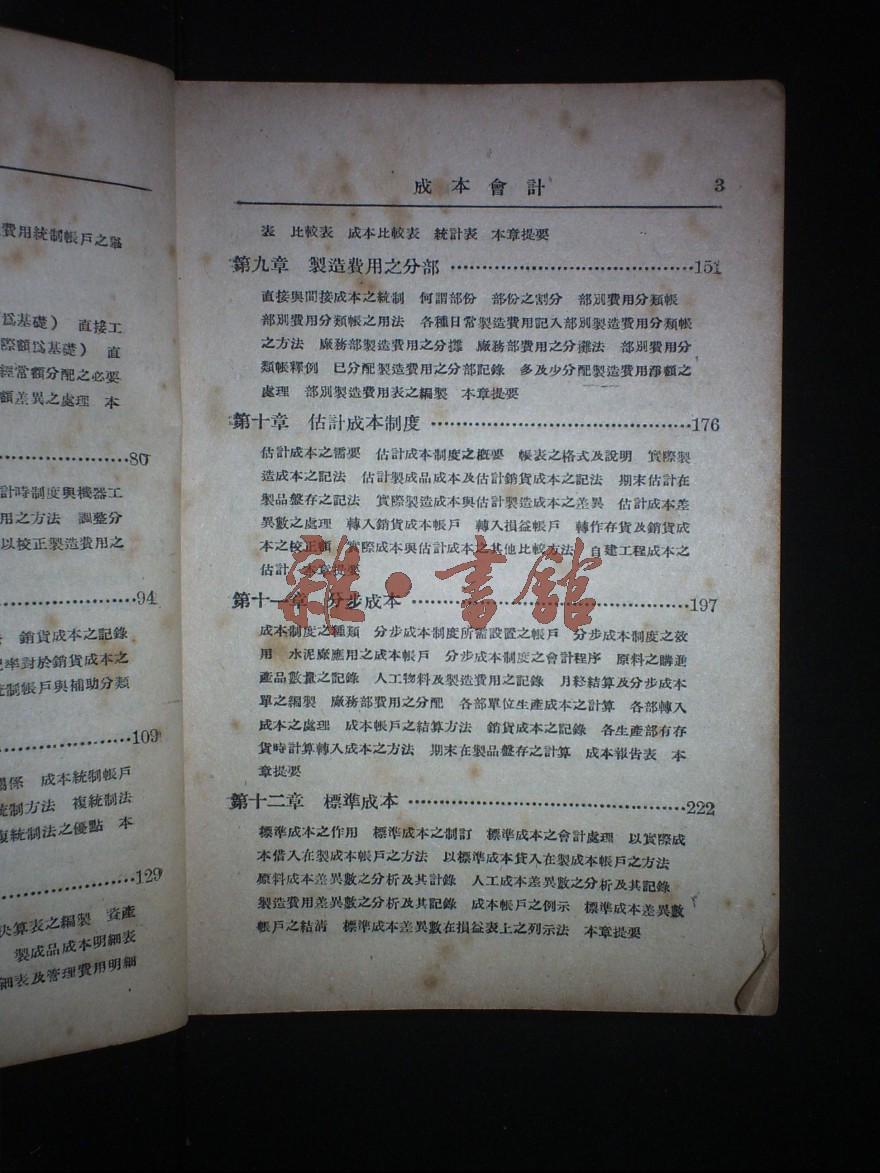 費用統制帳戶之舉
爲基礎） 直接工
際額爲基礎） 直
經常額分配之必要
額差異之處理 本
80
計時制度與機器工
用之方法 調整分
以校正製造費用之
94
銷貨成本之記錄
率對於銷貨成本之
統制帳戶與補助分類
109
關係 成本統制帳戶
統制方法 複統制法
複統制法之優點 本
129
決算表之編製 資產
製成品成本明細表
細表及管理費用明細
成本會計 3
表 比較表 成本比較表 統計表 本章提要
第九章 製造費用之分部 151
直接與間接成本之統制 何謂部份 部份之割分 部別費用分類帳
部別費用分類帳之用法 各種日常製造費用記入部別製造費用分類帳
之方法 廠務部製造費用之分攤 廠務部費用之分攤法 部別費用分
類帳釋例 已分配製造費用之分部記錄 多及少分配製造費用淨額之
處理 部別製造費用表之編製 本章提要
第十章 估計成本制度 176
估計成本之需要 估計成本制度之概要 帳表之格式及說明 實際製
造成本之記法 估計製成品成本及估計銷貨成本之記法 期末估計在
製品盤存之記法 實際製造成本與估計製造成本之差異 估計成本差
異數之處理 轉入銷貨成本帳戶 轉入損益帳戶 轉作存貨及銷貨成
本之校正額 實際成本與估計成本之其他比較方法 自建工程成本之
估計 本章提要
雜·書館
第十一章 分步成本 197
成本制度之種類 分步成本制度所需設置之帳戶 分步成本制度之效
用 水泥廠應用之成本帳戶 分步成本制度之會計程序 原料之購進
產品數量之記錄 人工物料及製造費用之記錄 月終結算及分步成本
單之編製 廠務部費用之分配 各部單位生產成本之計算 各部轉入
成本之處理 成本帳戶之結算方法 銷貨成本之記錄 各生產部有存
貨時計算轉入成本之方法 期末在製品盤存之計算 成本報告表 本
章提要
第十二章 標準成本 222
標準成本之作用 標準成本之制訂 標準成本之會計處理 以實際成
本借入在製成本帳戶之方法 以標準成本貸入在製成本帳戶之方法
原料成本差異數之分析及其計錄 人工成本差異數之分析及其記錄
製造費用差異數之分析及其記錄 成本帳戶之例示 標準成本差異數
帳戶之結清 標準成本差異數在損益表上之列示法 本章提要